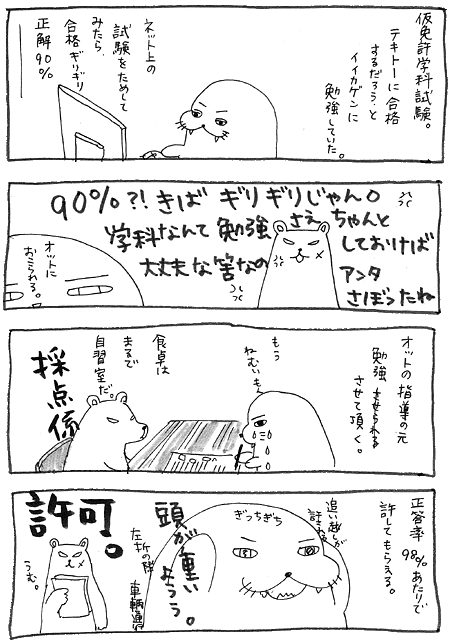 仮免許学科試験。
テキトーに合格
するだろう、と
イイカゲンに
勉強していた。
ネット上の
試験をためして
みたら、
合格ギリギリ
正解90%
90%?!きば ギリギリじゃん。
学科なんて勉強さえちゃんと
しておけば
大丈夫な筈なの
アンタ
さぼったね
オットに
おこられる。
オットの指導の元
勉強させられる
させて頂く。
もう
ねむいもん
食卓は
まるで
自習室だ。
採点係
正答率98%あたりで
許してもらえる。
追い越しが
ぎっちぎち
頭が重い
ようう。
左折の際
車輌通
許可。
うむ。